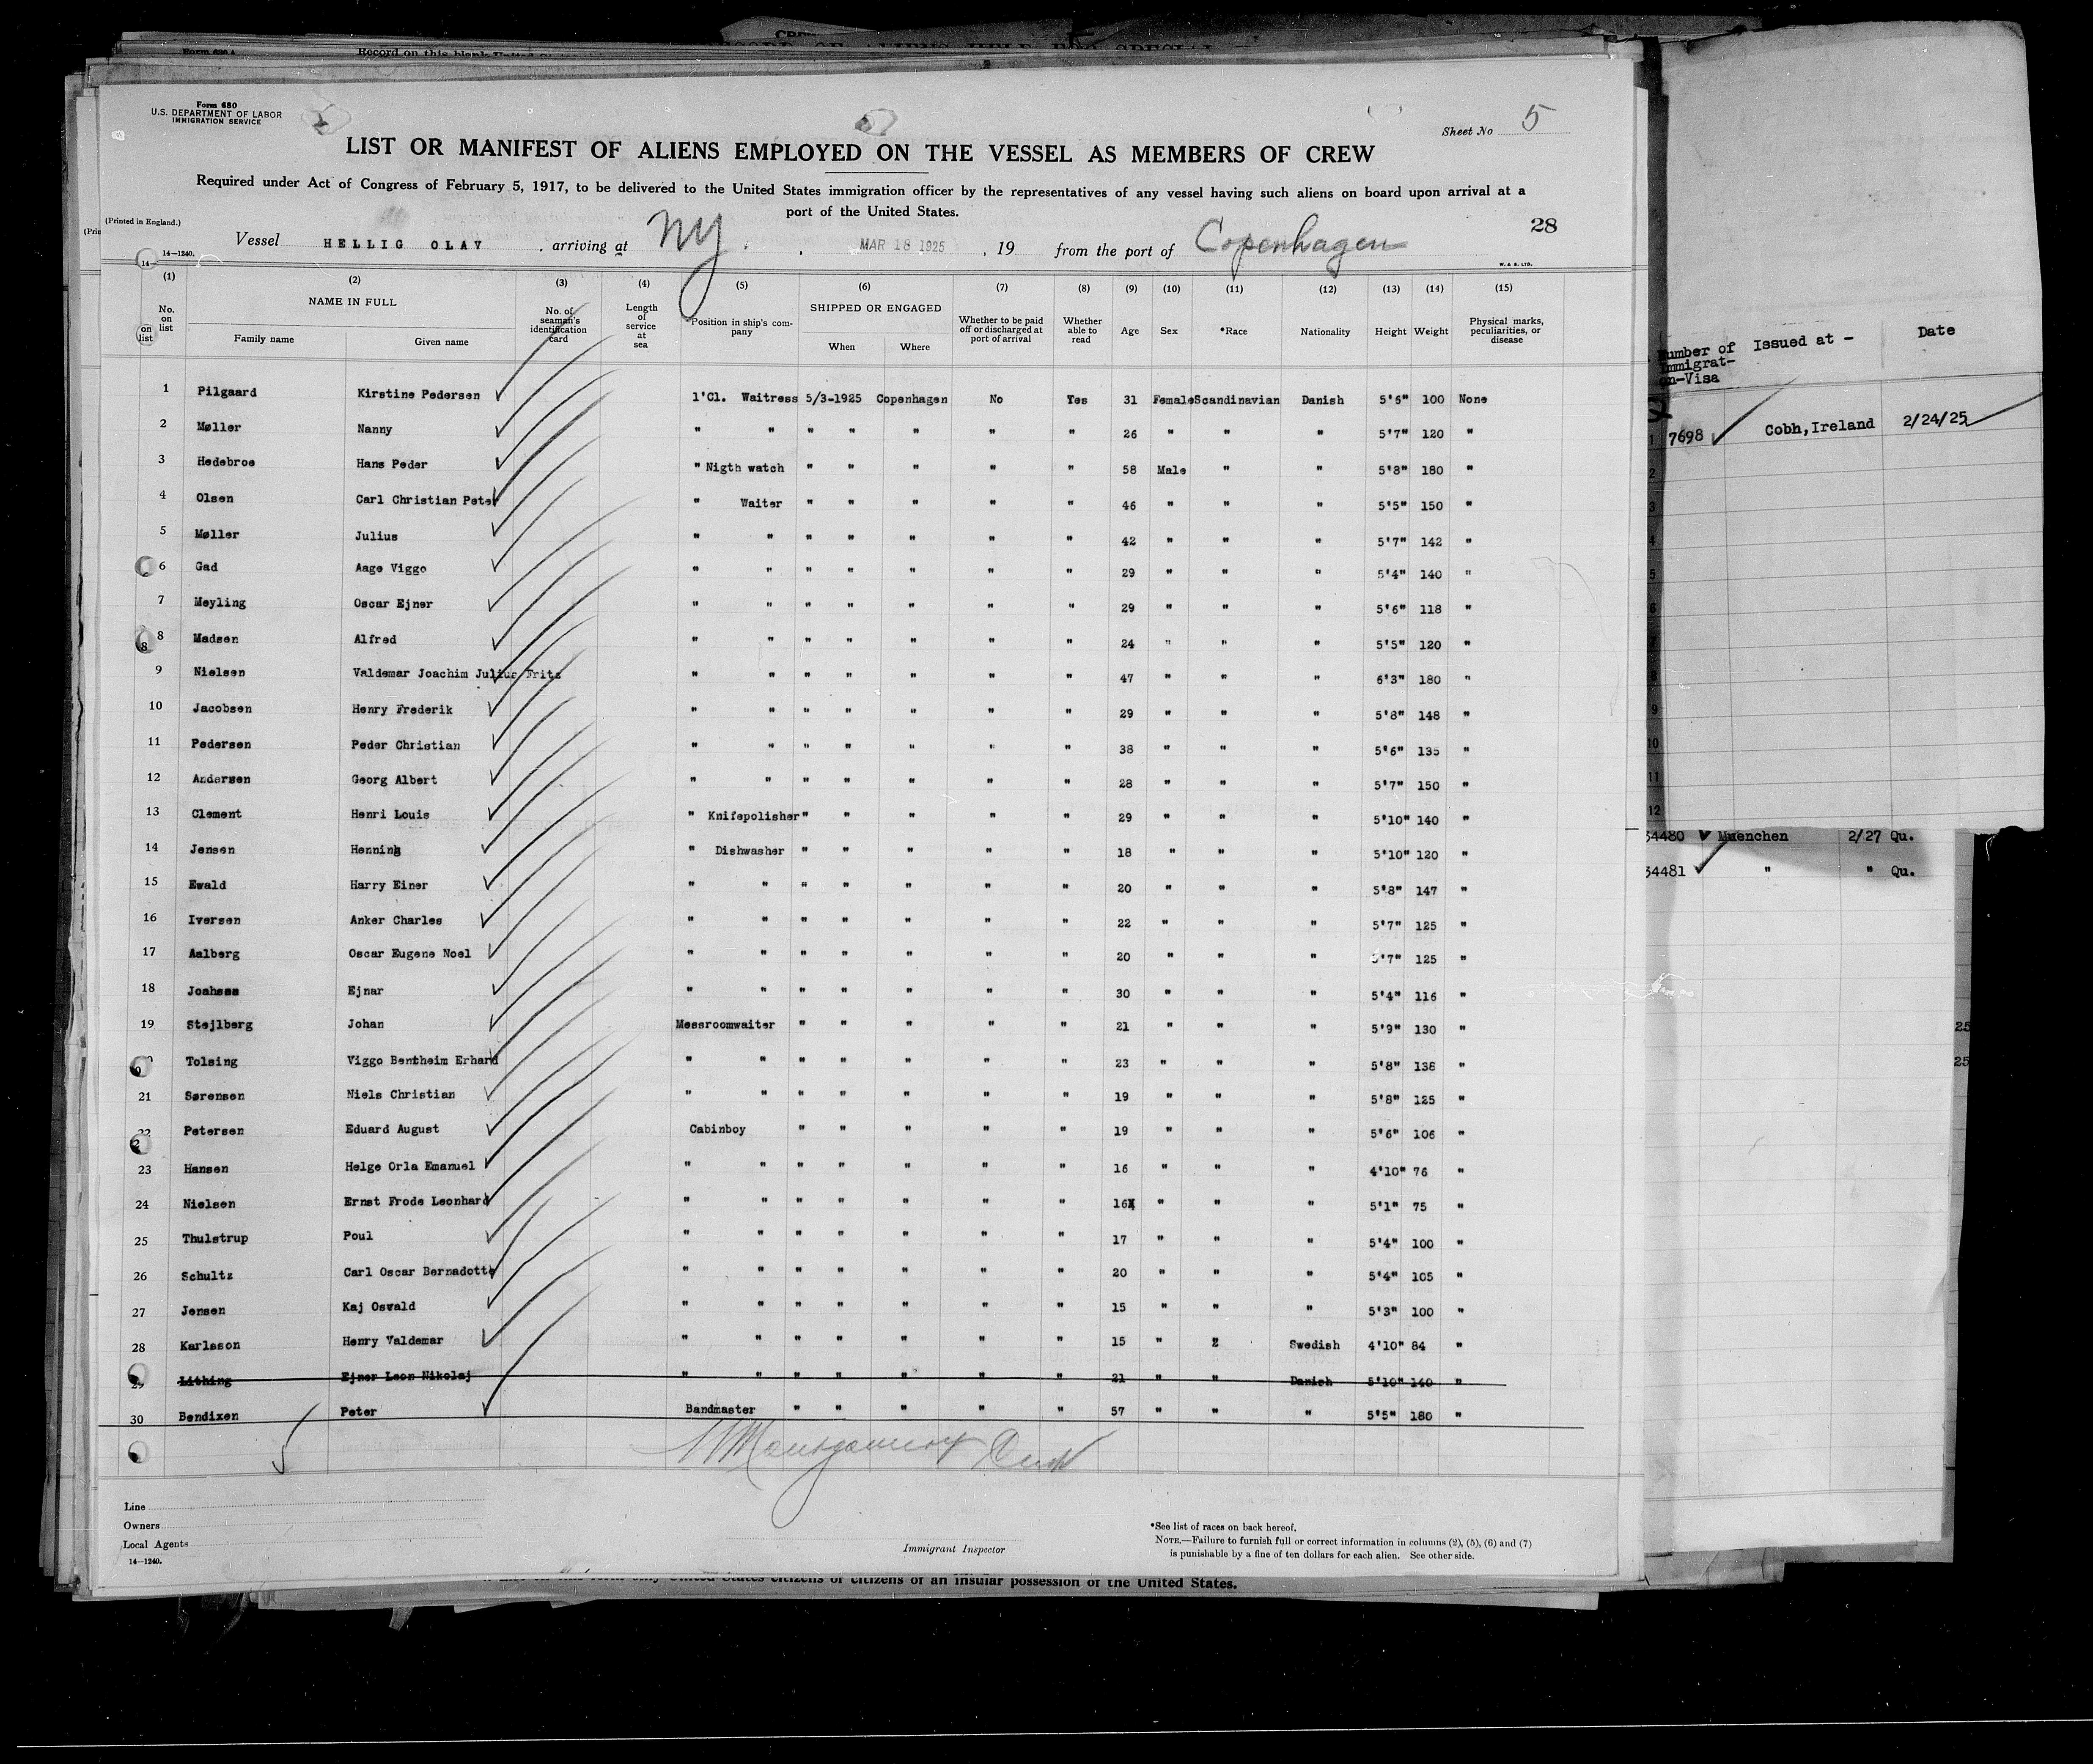 Form 630 A
Record on this blank United
Form 680
U.S. DEPARTMENT OF LABOR
IMMIGRATION SERVICE
Sheet No 5
LIST OR MANIFEST OF ALIENS EMPLOYED ON THE VESSEL AS MEMBERS OF CREW
Required under Act of Congress of February 5, 1917, to be delivered to the United States immigration officer by the representatives of any vessel having such aliens on board upon arrival at a
port of the United States.
(Printed in England.)
28
Vessel HELLIG OLAV , arriving at NY , MAR 18 1925 , 19 from the port of Copenhagen
14—1240.
W. & S. LTD.
(1) (2) (3) (4) (5) (6) (7) (8) (9) (10) (11) (12) (13) (14) (15)
No. on list NAME IN FULL Family name Given name No. of seaman's identification card Length of service at sea Position in ship's company SHIPPED OR ENGAGED When Where Whether to be paid off or discharged at port of arrival Whether able to read Age Sex *Race Nationality Height Weight Physical marks, peculiarities, or disease
1 Pilgaard Kirstine Pedersen 1'Cl. Waitress 5/3-1925 Copenhagen No Yes 31 Female Scandinavian Danish 5'6" 100 None
2 Møller Nanny " " " " " " " 26 " " " 5'7" 120 "
3 Hedebroe Hans Peder " Nigth watch " " " " " 58 Male " " 5'8" 180 "
4 Olsen Carl Christian Peter " Waiter " " " " " 46 " " " 5'5" 150 "
5 Møller Julius " " " " " " " 42 " " " 5'7" 142 "
6 Gad Aage Viggo " " " " " " " 29 " " " 5'4" 140 "
7 Meyling Oscar Ejner " " " " " " " 29 " " " 5'6" 118 "
8 Madsen Alfred " " " " " " " 24 " " " 5'5" 120 "
9 Nielsen Valdemar Joachim Julius Fritz " " " " " " " 47 " " " 6'3" 180 "
10 Jacobsen Henry Frederik " " " " " " " 29 " " " 5'8" 148 "
11 Pedersen Peder Christian " " " " " " " 38 " " " 5'6" 135 "
12 Andersen Georg Albert " " " " " " " 28 " " " 5'7" 150 "
13 Clement Henri Louis " Knifepolisher " " " " " 29 " " " 5'10" 140 "
14 Jensen Henning " Dishwasher " " " " " 18 " " " 5'10" 120 "
15 Ewald Harry Einer " " " " " " " 20 " " " 5'8" 147 "
16 Iversen Anker Charles " " " " " " " 22 " " " 5'7" 125 "
17 Aalberg Oscar Eugene Noel " " " " " " " 20 " " " 5'7" 125 "
18 Ejnar " " " " " " " 30 " " " 5'4" 116 "
19 Stejlberg Johan Messroomwaiter " " " " " 21 " " " 5'9" 130 "
Tolsing Viggo Bentheim Erhard " " " " " " " 23 " " " 5'8" 136 "
21 Sørensen Niels Christian " " " " " " " 19 " " " 5'8" 125 "
22 Petersen Eduard August Cabinboy " " " " " 19 " " " 5'6" 106 "
23 Hansen Helge Orla Emanuel " " " " " " " 16 " " " 4'10" 76 "
24 Nielsen Ernst Frode Leonhard " " " " " " " 16 " " " 5'1" 75 "
25 Thulstrup Poul " " " " " " " 17 " " " 5'4" 100 "
26 Schultz Carl Oscar Bernadotte " " " " " " " 20 " " " 5'4" 105 "
27 Jensen Kaj Osvald " " " " " " " 15 " " " 5'3" 100 "
28 Karlsson Henry Valdemar " " " " " " " 15 " 2 Swedish 4'10" 84 "
29 Lithing Ejner Leon Nikolaj " " " " " " " 21 " " Danish 5'10" 140 "
30 Bendixen Peter Bandmaster " " " " " 57 " " " 5'5" 180 "
Montgomery
Line
Owners
Local Agents
14—1240.
Immigrant Inspector
*See list of races on back hereof.
NOTE.—Failure to furnish full or correct information in columns (2), (5), (6) and (7)
is punishable by a fine of ten dollars for each alien. See other side.
United States citizens or citizens of an insular possession of the United States.
Number of Immigration-Visa Issued at - Date
7698 Cobh, Ireland 2/24/25
34480 Muenchen 2/27 Qu.
34481 " " Qu.
25
25